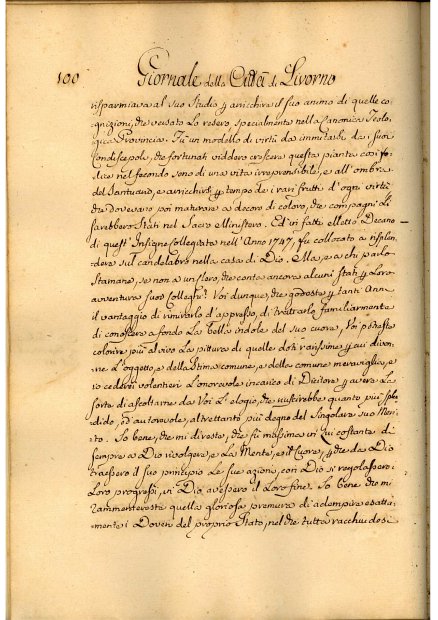 100 Giornale della Città di Livorno
risparmiava al suo Studio, e arricchire il suo animo di quelle co-
gnizioni, che versato lo resero specialmente nella Canonica Teolo-
gica Provincia. Fù un modello di virtù da immitarsi da i suoi
Condiscepoli, che fortunati viddero crescere questa pianta così fe-
lice nel fecondo seno di una vita irreprensibile, e all'ombra
del Santuario, e arricchirsi per tempo de i rari frutti d'ogni virtù
che dovevano poi maturare a decoro di coloro, che compagni Li
sarebbero Stati nel Sacro Ministero. Ed in fatti eletto Decano
di quest'Insigne Collegiata nell'Anno 1747, fu collocato a risplen-
dere sul candelabro nella casa di Dio. Ma, e a chi parlo
stamane, se non a un clero, che conta ancora alcuni stati per Loro
avventura suoi Colleghi? Voi dunque, che godeste per tanti Anni
il vantaggio di rimirarlo d'appresso, di trattarlo familiarmente
di conoscere a fondo La bella indole del suo cuore, Voi potreste
colorire più al vivo La pittura di quelle doti rarissime per cui diven-
ne L'oggetto, e della Stima comune, e della comune meraviglia, e
io cederei volentieri L'onorevole incarico di Dicitore per avere La
sorte di ascoltarne da Voi L'elogio, che riuscirebbe quanto più splen-
dido, ed autorevole, altrettanto più degno del Singolare suo Meri-
to. So bene, che mi direste, che fù massima in Lui costante di
sempre a Dio rivolgere, e La Mente, e il Cuore, e che da Dio
traessero il suo principio Le sue azioni, con Dio si regolassero i
Loro progressi, in Dio avessero il Loro fine. So bene che mi
rammentereste quella gloriosa premura di adempire esatta-
mente i Doveri del proprio Stato, nel che tutta racchiudesi